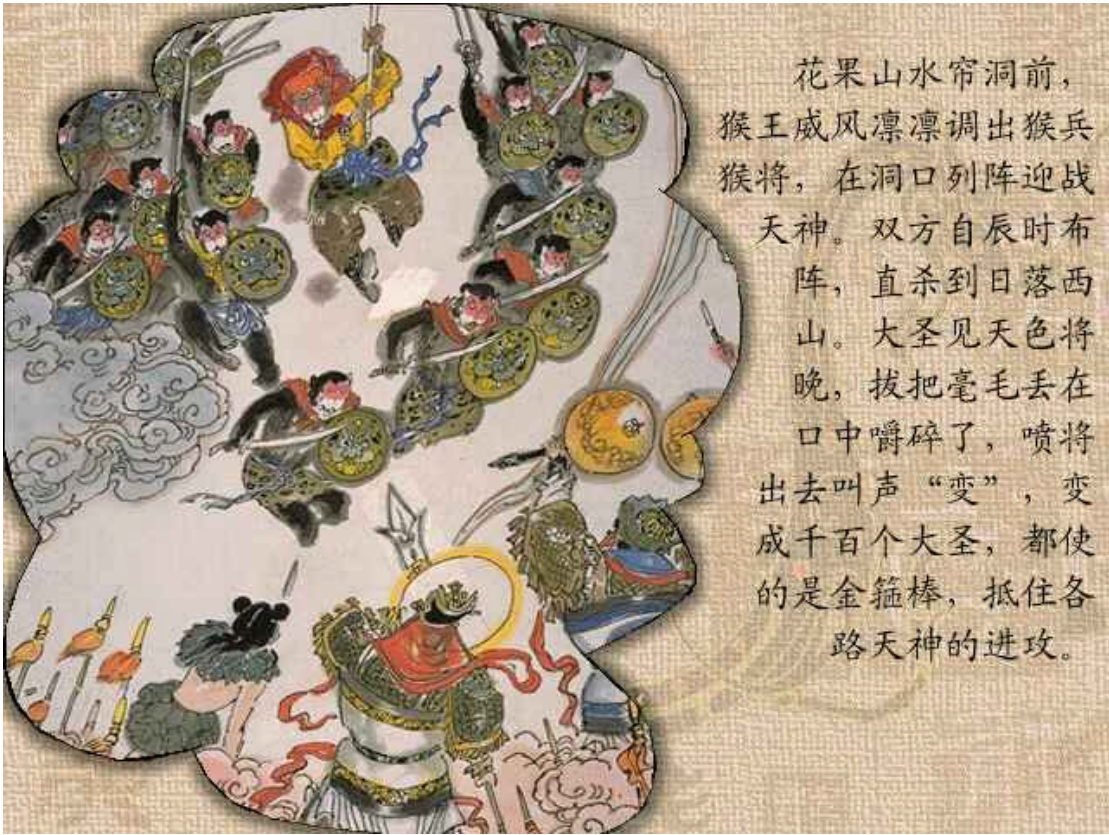 花果山水帘洞前，
猴王威风凛凛调出猴兵
猴将，在洞口列阵迎战
天神。双方自辰时布
阵，直杀到日落西
山。大圣见天色将
晚，拔把毫毛丢在
口中嚼碎了，喷将
出去叫声“变”，变
成千百个大圣，都使
的是金箍棒，抵住各
路天神的进攻。